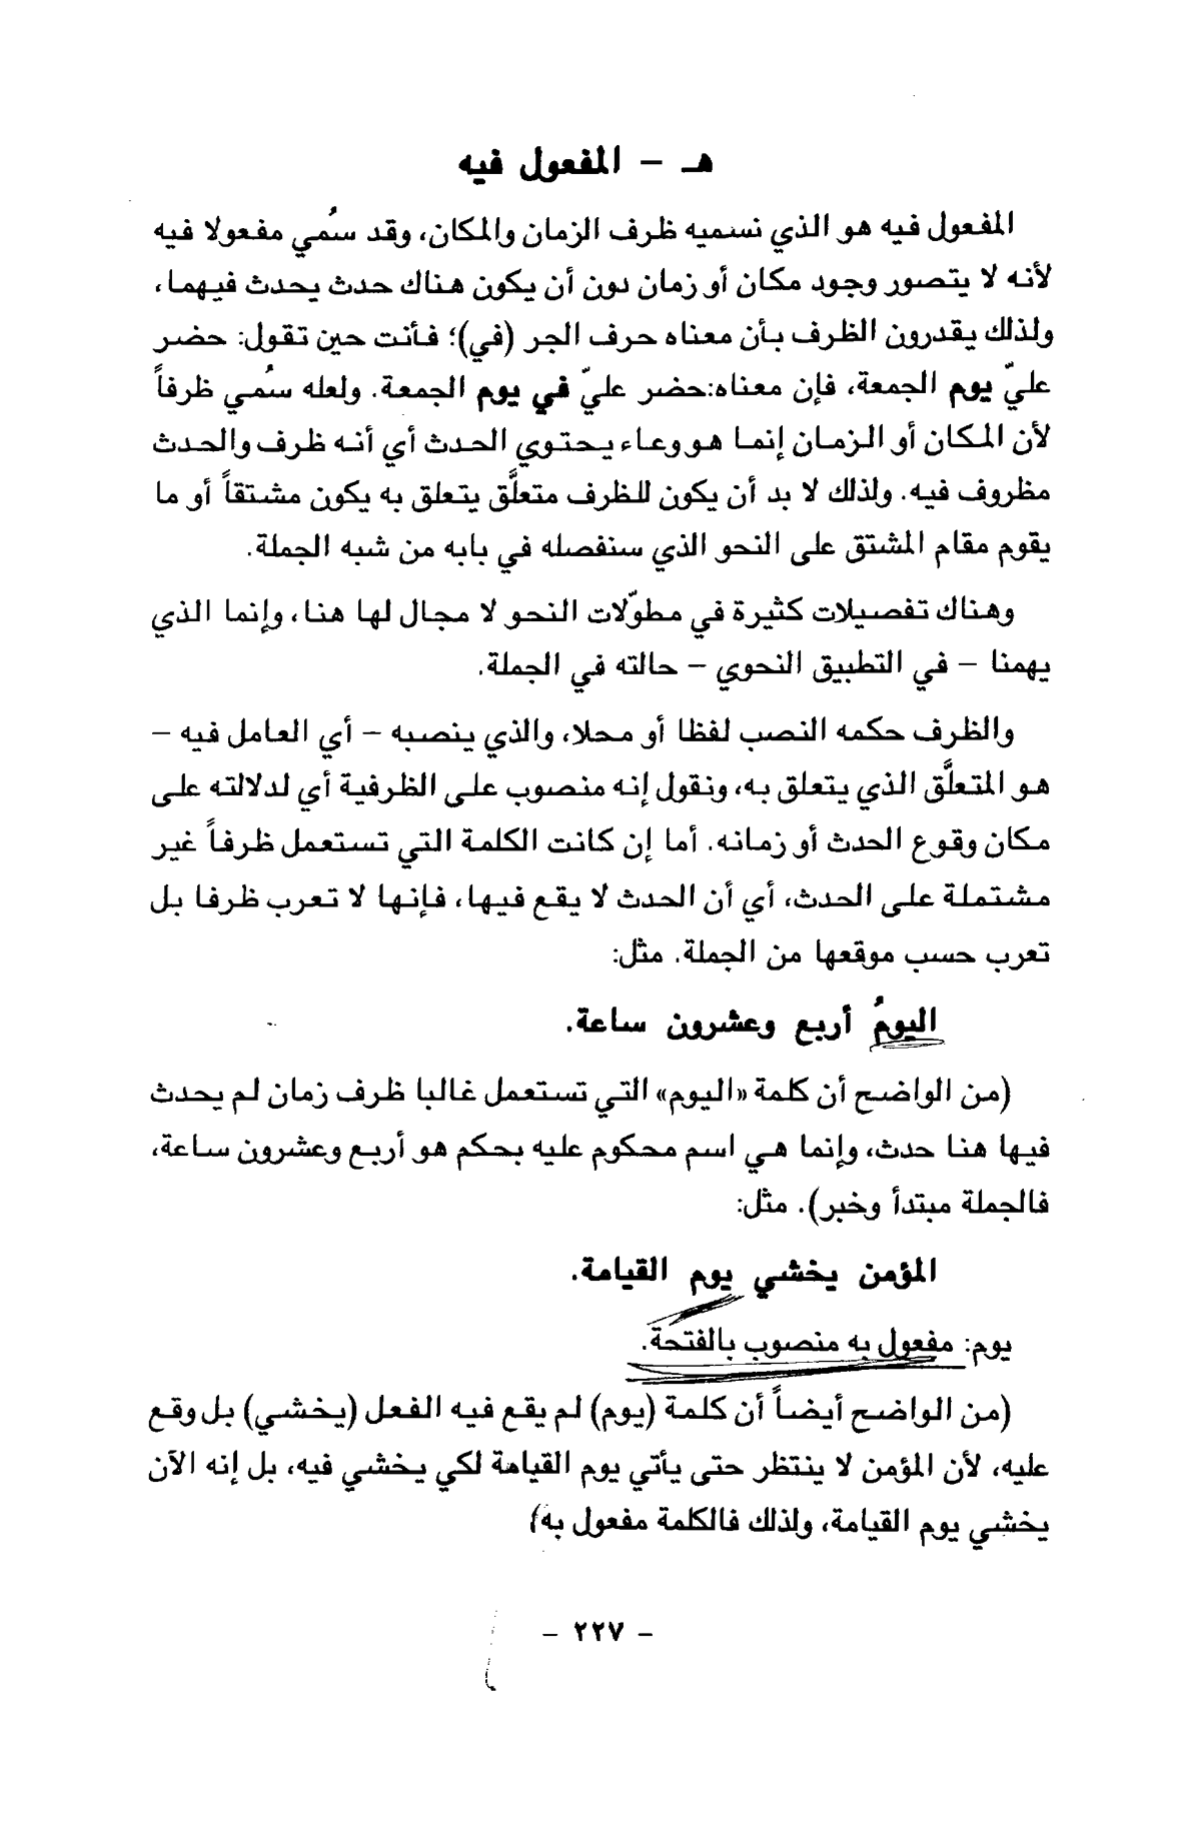 هـ – المفعول فيه
المفعول فيه هو الذي نسميه ظرف الزمان والمكان، وقد سُمي مفعولا فيه
لأنه لا يتصور وجود مكان أو زمان دون أن يكون هناك حدث يحدث فيهما،
ولذلك يقدرون الظرف بأن معناه حرف الجر (في)؛ فأنت حين تقول: حضر
عليّ يوم الجمعة، فإن معناه:حضر عليّ في يوم الجمعة. ولعله سُمي ظرفاً
لأن المكان أو الزمان إنما هو وعاء يحتوي الحدث أي أنه ظرف والحدث
مظروف فيه. ولذلك لا بد أن يكون للظرف متعلَّق يتعلق به يكون مشتقاً أو ما
يقوم مقام المشتق على النحو الذي سنفصله في بابه من شبه الجملة.
وهناك تفصيلات كثيرة في مطوّلات النحو لا مجال لها هنا، وإنما الذي
يهمنا – في التطبيق النحوي – حالته في الجملة.
والظرف حكمه النصب لفظا أو محلا، والذي ينصبه – أي العامل فيه –
هو المتعلَّق الذي يتعلق به، ونقول إنه منصوب على الظرفية أي لدلالته على
مكان وقوع الحدث أو زمانه. أما إن كانت الكلمة التي تستعمل ظرفاً غير
مشتملة على الحدث، أي أن الحدث لا يقع فيها، فإنها لا تعرب ظرفا بل
تعرب حسب موقعها من الجملة. مثل:
اليومُ أربع وعشرون ساعة.
(من الواضح أن كلمة «اليوم» التي تستعمل غالبا ظرف زمان لم يحدث
فيها هنا حدث، وإنما هي اسم محكوم عليه بحكم هو أربع وعشرون ساعة،
فالجملة مبتدأ وخبر). مثل:
المؤمن يخشي يوم القيامة.
يوم: مفعول به منصوب بالفتحة.
(من الواضح أيضاً أن كلمة (يوم) لم يقع فيه الفعل (يخشي) بل وقع
عليه، لأن المؤمن لا ينتظر حتى يأتي يوم القيامة لكي يخشي فيه، بل إنه الآن
يخشي يوم القيامة، ولذلك فالكلمة مفعول به)
– ٢٢٧ –